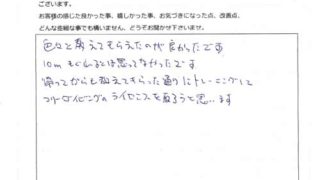 ございます。
お客様の感じた良かった事、嬉しかった事、お気づきになった点、改善点、
どんな些細な事でも構いません、どうぞお聞かせ下さいませ。
色々と教えてもらえたのが良かったです
10mもぐれるとは思ってなかったです
帰ってからも教えてもらった通りにトレーニングして
フリーダイビングのライセンスを取ろうと思います